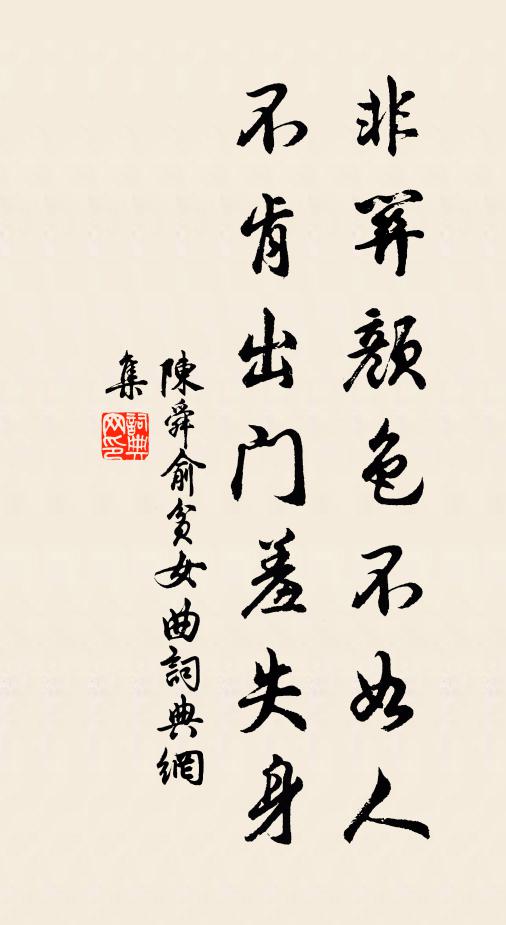 非關顏色不如人
不肯出門羞失身
陳舜俞貧女曲詞典網
集
詞典
网印